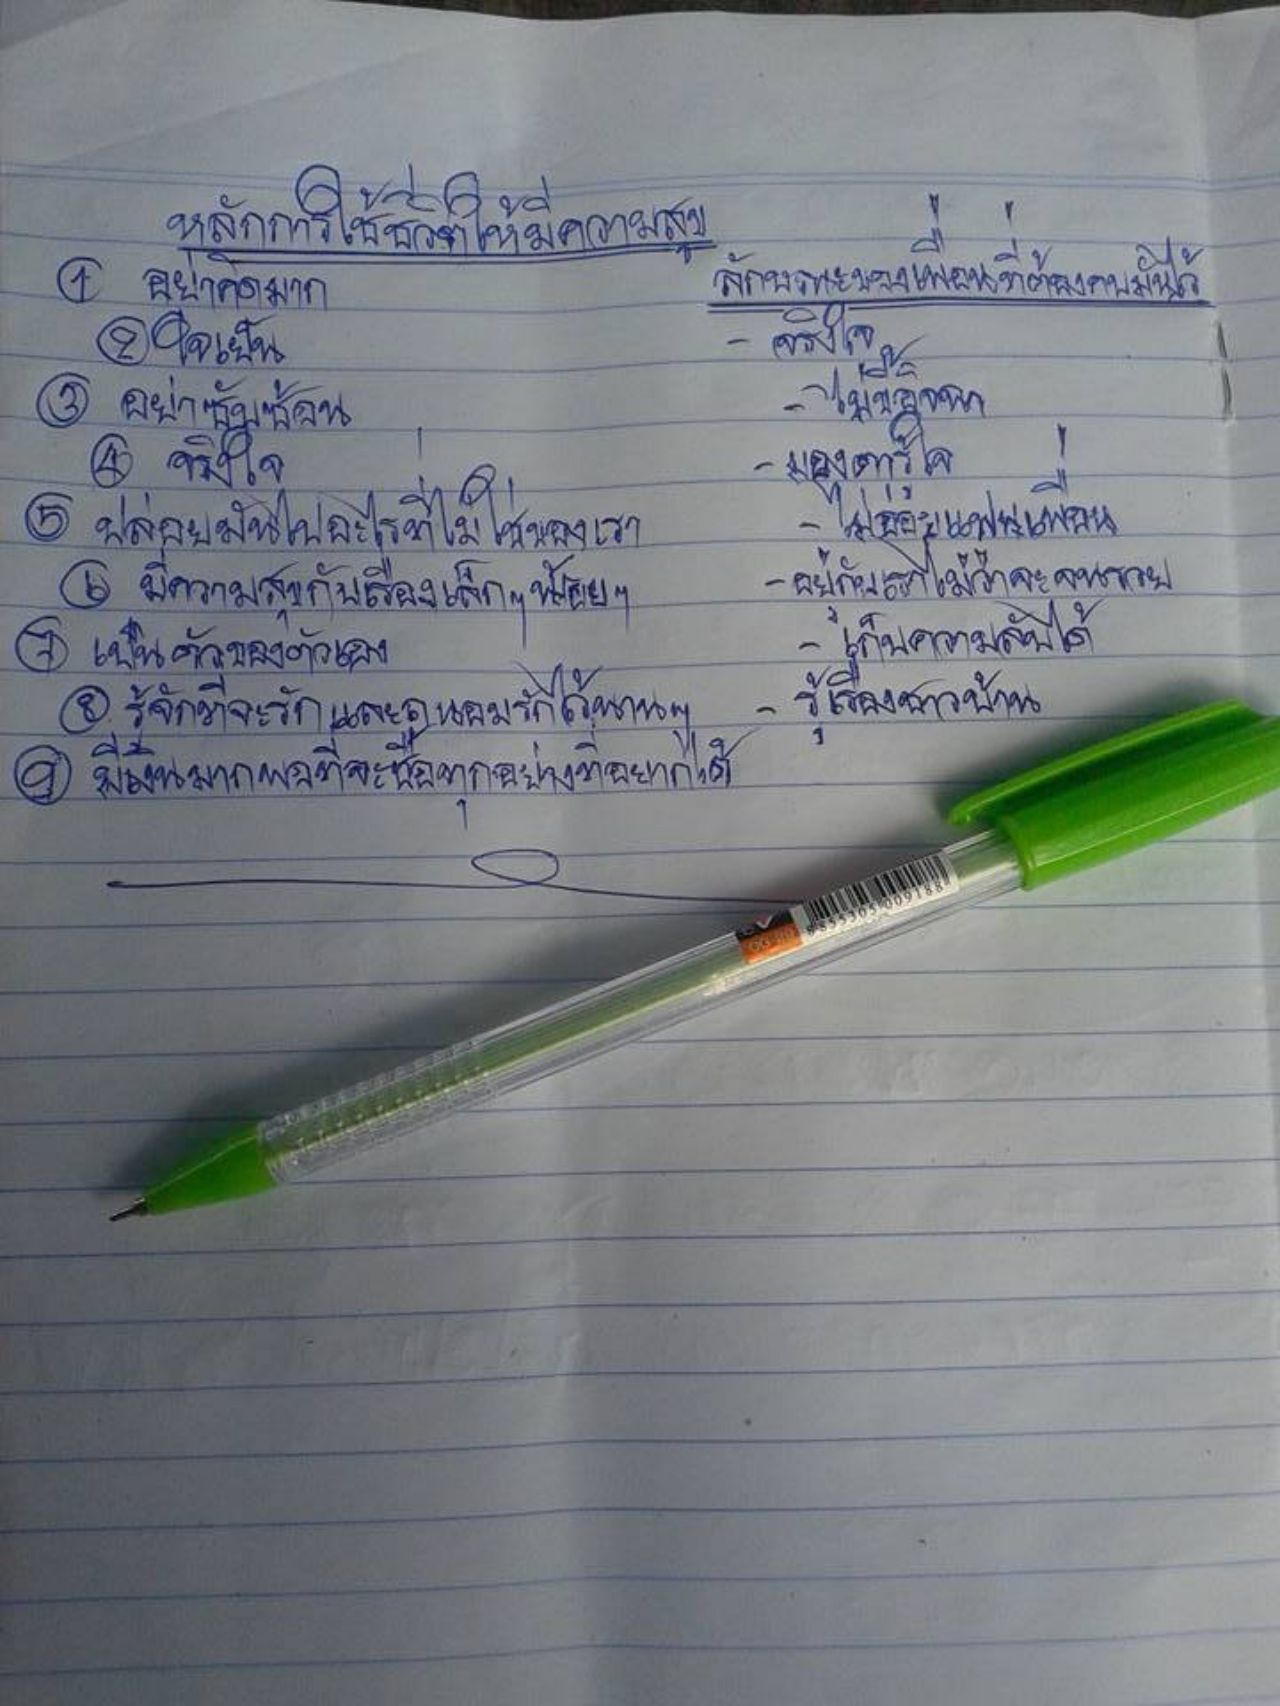 หลักการใช้ชีวิตให้มีความสุข
① อย่าคิดมาก
② ใจเย็น
③ อย่าซับซ้อน
④ จริงใจ
⑤ ปล่อยมันไปอะไรที่ไม่ใช่ของเรา
⑥ มีความสุขกับเรื่องเล็กๆ น้อยๆ
⑦ เป็นตัวของตัวเอง
⑧ รู้จักที่จะรัก และถนอมรักไว้นานๆ
⑨ มีเงินมากพอที่จะซื้อทุกอย่างที่อยากได้
ลักษณะของเพื่อนที่ต้องคบมันไว้
- จริงใจ
- ไม่ขี้อิจฉา
- มองตารู้ใจ
- ไม่อ่อยแฟนเพื่อน
- อยู่กับเราไม่ว่าจะจนรวย
- เก็บความลับได้
- รู้เรื่องชาวบ้าน
8855305 009188